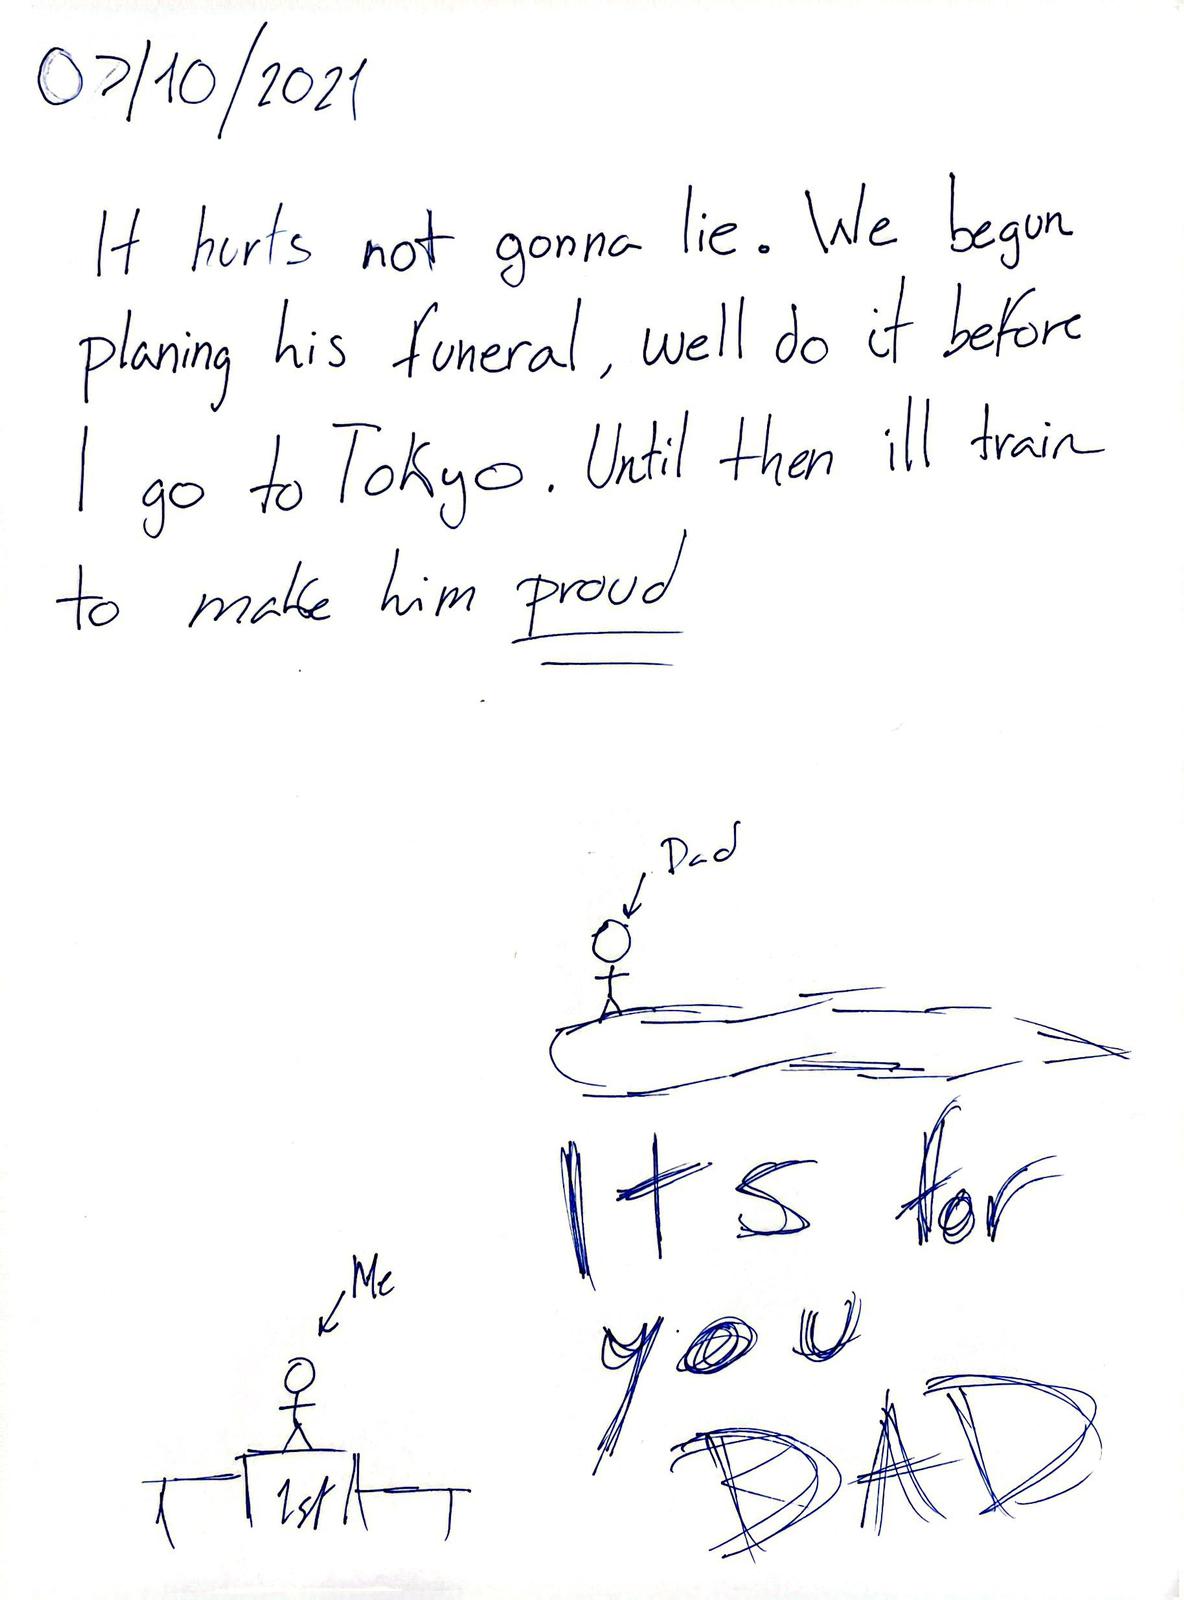 07/10/2021
It hurts not gonna lie. We begun
planing his funeral, well do it before
I go to Tokyo. Until then ill train
to make him proud
Dad
Its for
you
DAD
Me
1st